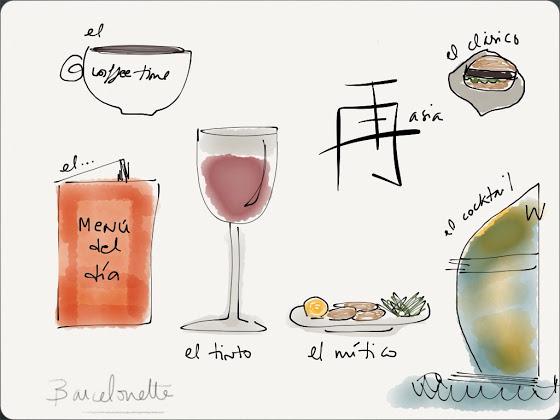 el
coffee time
el clásico
再
asia
el...
Menú
del
día
el cocktail
W
el tinto
el mítico
Barcelonette